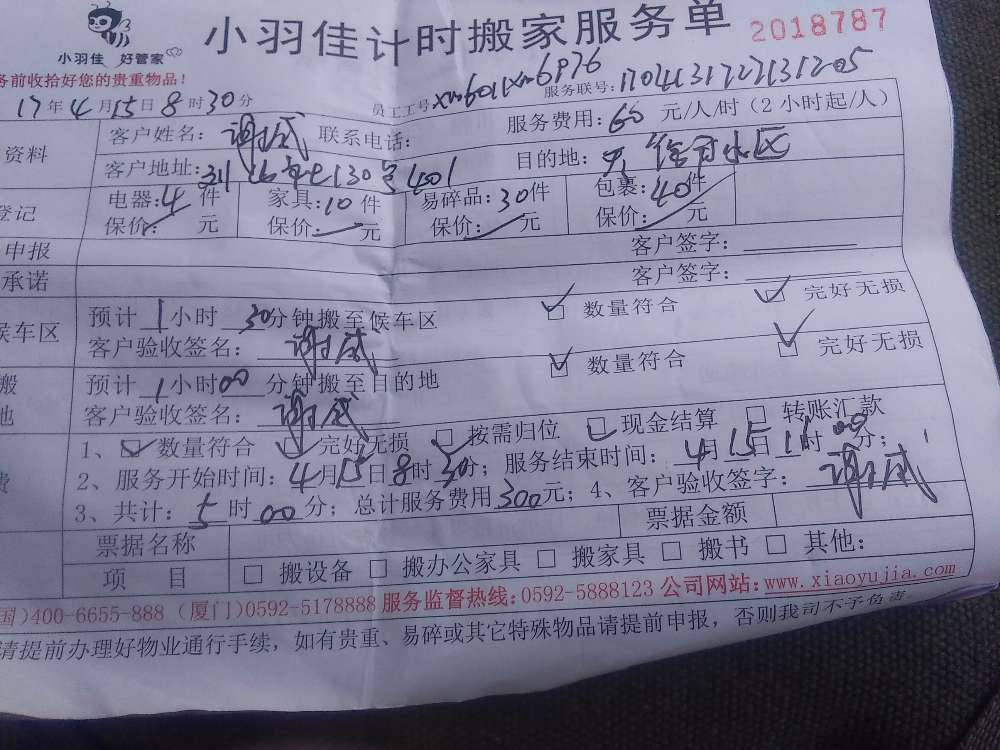 小羽佳计时搬家服务单 2018787
小羽佳 好管家
务前收拾好您的贵重物品！
17年4月15日8时30分 员工工号 xm6011xm6976 服务联号：
资料 客户姓名：谢威 联系电话： 服务费用：60 元/人/时（2小时起/人）
客户地址： 130号401 目的地：
登记 电器：4件 家具：10件 易碎品：30件 包裹：40件
保价： 元 保价： 元 保价： 元 保价： 元
申报 客户签字：
承诺 客户签字：
候车区 预计1小时30分钟搬至候车区 数量符合 完好无损
客户验收签名：谢威
搬 预计1小时00分钟搬至目的地 数量符合 完好无损
地 客户验收签名：谢威
1、数量符合 完好无损 按需归位 现金结算 转账汇款
费 2、服务开始时间：4月15日8时30分；服务结束时间：4月15日11时00分；
3、共计：5时00分；总计服务费用300元；4、客户验收签字：谢威
票据名称 票据金额
项 目 □ 搬设备 □ 搬办公家具 □ 搬家具 □ 搬书 □ 其他：
国)400-6655-888（厦门)0592-5178888 服务监督热线：0592-5888123 公司网站：www.xiaoyujia.com
请提前办理好物业通行手续，如有贵重、易碎或其它特殊物品请提前申报，否则我司不予负责